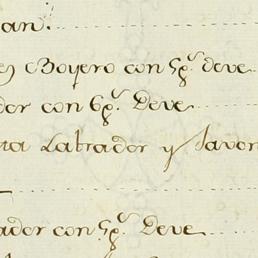 an.
Boyero con 5 p.s deve
dor con 6 p.s Deve
ta Labrador y Javon
ador con 5 p.s Deve